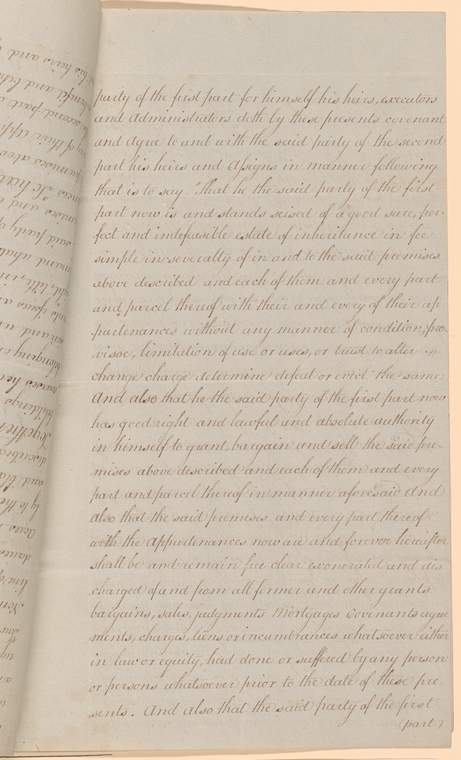 party of the first part for himself his heirs, executors
and administrators doth by these presents covenant
and agree to and with the said party of the second
part his heirs and assigns in manner following
that is to say. That he the said party of the first
part now is and stands seised of a good sure, per-
fect and indefeasible estate of inheritance in fee
simple in severally of in and to the said premises
above described and each of them and every part
and parcel thereof with their and every of their ap
purtenances without any manner of condition, pro-
visoe, limitation of use or uses, or trust to alter
change charge determine defeat or evict the same
And also that he the said party of the first part now
has good right and lawful and absolute authority
in himself to grant, bargain and sell the said pre-
mises above described and each of them and every
part and parcel thereof in manner aforesaid And
also that the said premises and every part thereof
with the appurtenances now are and forever hereafter
shall be and remain free clear exonerated and dis
charged of and from all former and other grants
bargains, sales, judgments Mortgages Covenants agree
ments, charges, liens or incumbrances whatsoever either
in law or equity, had done or suffered by any person
or persons whatsoever prior to the date of these pre
sents. And also that the said party of the first
(part)